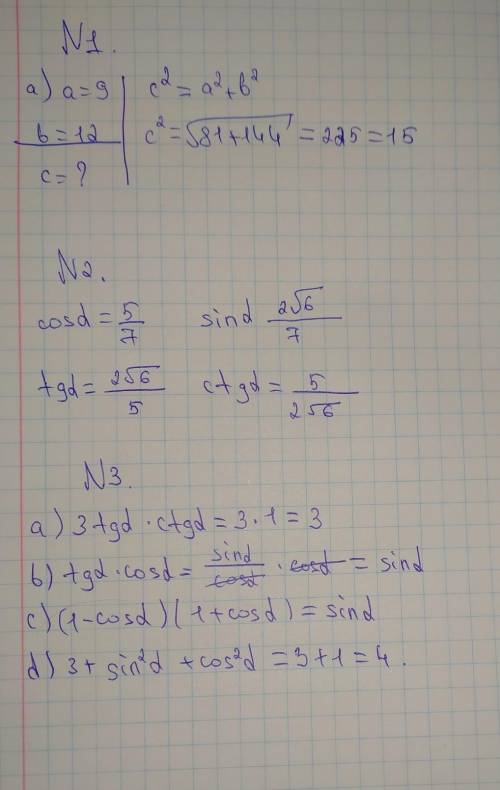 N1.
a) a=9 c²=a²+b²
b=12 c²=√81+144=225=15
c=?
N2.
cosd=5/7 sind 2√6/7
tgd=2√6/5 ctgd=5/2√6
N3.
a) 3tgd·ctgd=3·1=3
b) tgd·cosd=sind/cosd·cosd=sind
c) (1-cosd)(1+cosd)=sind
d) 3+sin²d+cos²d=3+1=4.